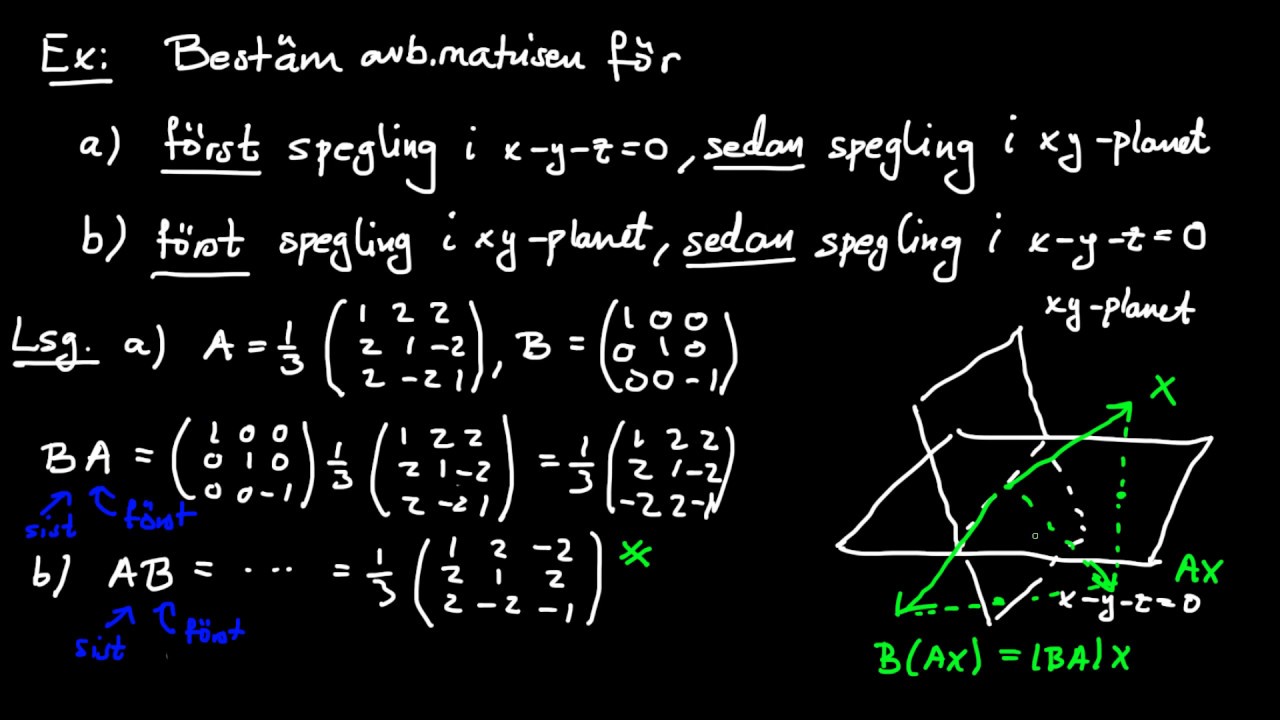 Ex: Bestäm avb.matrisen för
a) först spegling i x-y-z=0, sedan spegling i xy-planet
b) först spegling i xy-planet, sedan spegling i x-y-z=0
Lsg. a) A = 1/3 (1 2 2; 2 1 -2; 2 -2 1), B = (1 0 0; 0 1 0; 0 0 -1)
BA = (1 0 0; 0 1 0; 0 0 -1) 1/3 (1 2 2; 2 1 -2; 2 -2 1) = 1/3 (1 2 2; 2 1 -2; -2 2 -1)
sist först
b) AB = ... = 1/3 (1 2 -2; 2 1 2; 2 -2 -1) *
sist först
xy-planet
X
AX
x-y-z=0
B(AX) = (BA)X